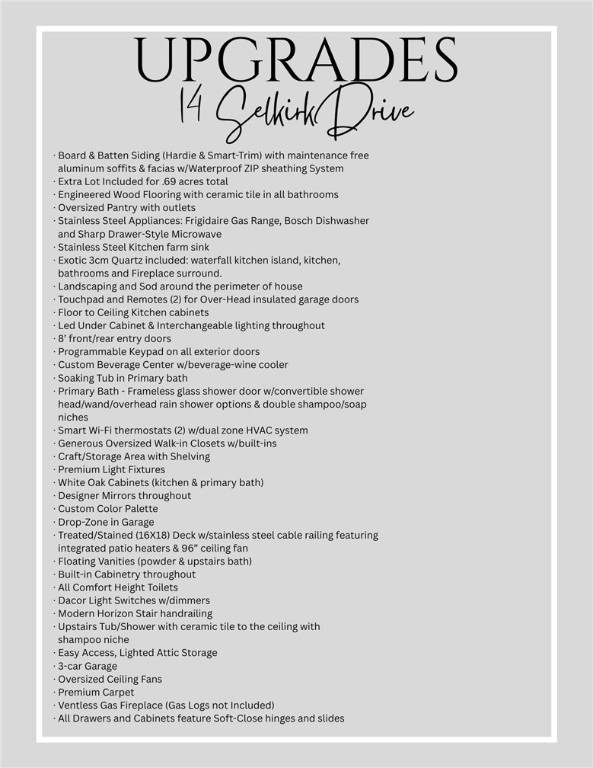 UPGRADES
14 Selkirk Drive
· Board & Batten Siding (Hardie & Smart-Trim) with maintenance free
aluminum soffits & facias w/Waterproof ZIP sheathing System
· Extra Lot Included for .69 acres total
· Engineered Wood Flooring with ceramic tile in all bathrooms
· Oversized Pantry with outlets
· Stainless Steel Appliances: Frigidaire Gas Range, Bosch Dishwasher
and Sharp Drawer-Style Microwave
· Stainless Steel Kitchen farm sink
· Exotic 3cm Quartz included: waterfall kitchen island, kitchen,
bathrooms and Fireplace surround.
· Landscaping and Sod around the perimeter of house
· Touchpad and Remotes (2) for Over-Head insulated garage doors
· Floor to Ceiling Kitchen cabinets
· Led Under Cabinet & Interchangeable lighting throughout
· 8' front/rear entry doors
· Programmable Keypad on all exterior doors
· Custom Beverage Center w/beverage-wine cooler
· Soaking Tub in Primary bath
· Primary Bath - Frameless glass shower door w/convertible shower
head/wand/overhead rain shower options & double shampoo/soap
niches
· Smart Wi-Fi thermostats (2) w/dual zone HVAC system
· Generous Oversized Walk-in Closets w/built-ins
· Craft/Storage Area with Shelving
· Premium Light Fixtures
· White Oak Cabinets (kitchen & primary bath)
· Designer Mirrors throughout
· Custom Color Palette
· Drop-Zone in Garage
· Treated/Stained (16X18) Deck w/stainless steel cable railing featuring
integrated patio heaters & 96" ceiling fan
· Floating Vanities (powder & upstairs bath)
· Built-in Cabinetry throughout
· All Comfort Height Toilets
· Dacor Light Switches w/dimmers
· Modern Horizon Stair handrailing
· Upstairs Tub/Shower with ceramic tile to the ceiling with
shampoo niche
· Easy Access, Lighted Attic Storage
· 3-car Garage
· Oversized Ceiling Fans
· Premium Carpet
· Ventless Gas Fireplace (Gas Logs not Included)
· All Drawers and Cabinets feature Soft-Close hinges and slides